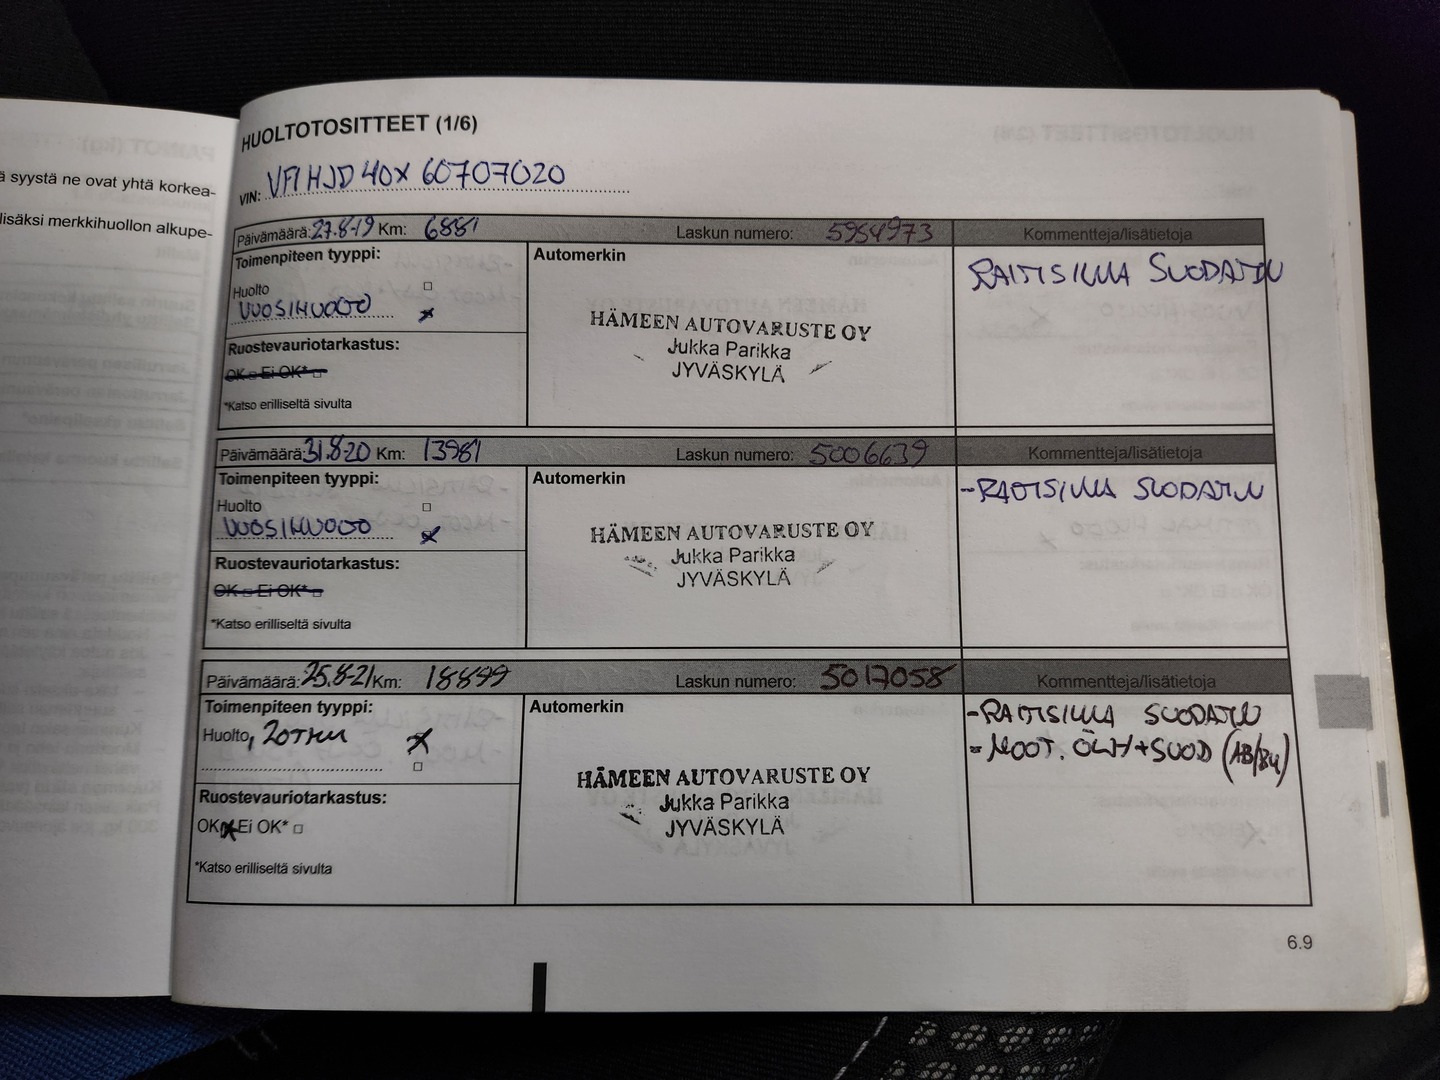 ä syystä ne ovat yhtä korkea-
lisäksi merkkihuollon alkupe-
HUOLTOTOSITTEET (1/6)
VIN: VF1HJD40X60707020
Päivämäärä: 27.8-19 Km: 6881 Laskun numero: 5954973 Kommentteja/lisätietoja
Toimenpiteen tyyppi: Automerkin
RAITISILMA SUODATIN
Huolto
VUOSIHUOLTO
HÄMEEN AUTOVARUSTE OY
Jukka Parikka
JYVÄSKYLÄ
Ruostevauriotarkastus:
OK Ei OK*
*Katso erilliseltä sivulta
Päivämäärä: 31.8-20 Km: 13981 Laskun numero: 5006639 Kommentteja/lisätietoja
Toimenpiteen tyyppi: Automerkin
-RAITISILMA SUODATIN
Huolto
VUOSIHUOLTO
HÄMEEN AUTOVARUSTE OY
Jukka Parikka
JYVÄSKYLÄ
Ruostevauriotarkastus:
OK Ei OK*
*Katso erilliseltä sivulta
Päivämäärä: 25.8-21 Km: Laskun numero: 5017058 Kommentteja/lisätietoja
Toimenpiteen tyyppi: Automerkin
-RAITISILMA SUODATIN
Huolto,
- MOOT. ÖLJY+SUOD
HÄMEEN AUTOVARUSTE OY
Jukka Parikka
JYVÄSKYLÄ
Ruostevauriotarkastus:
OK Ei OK*
*Katso erilliseltä sivulta
6.9